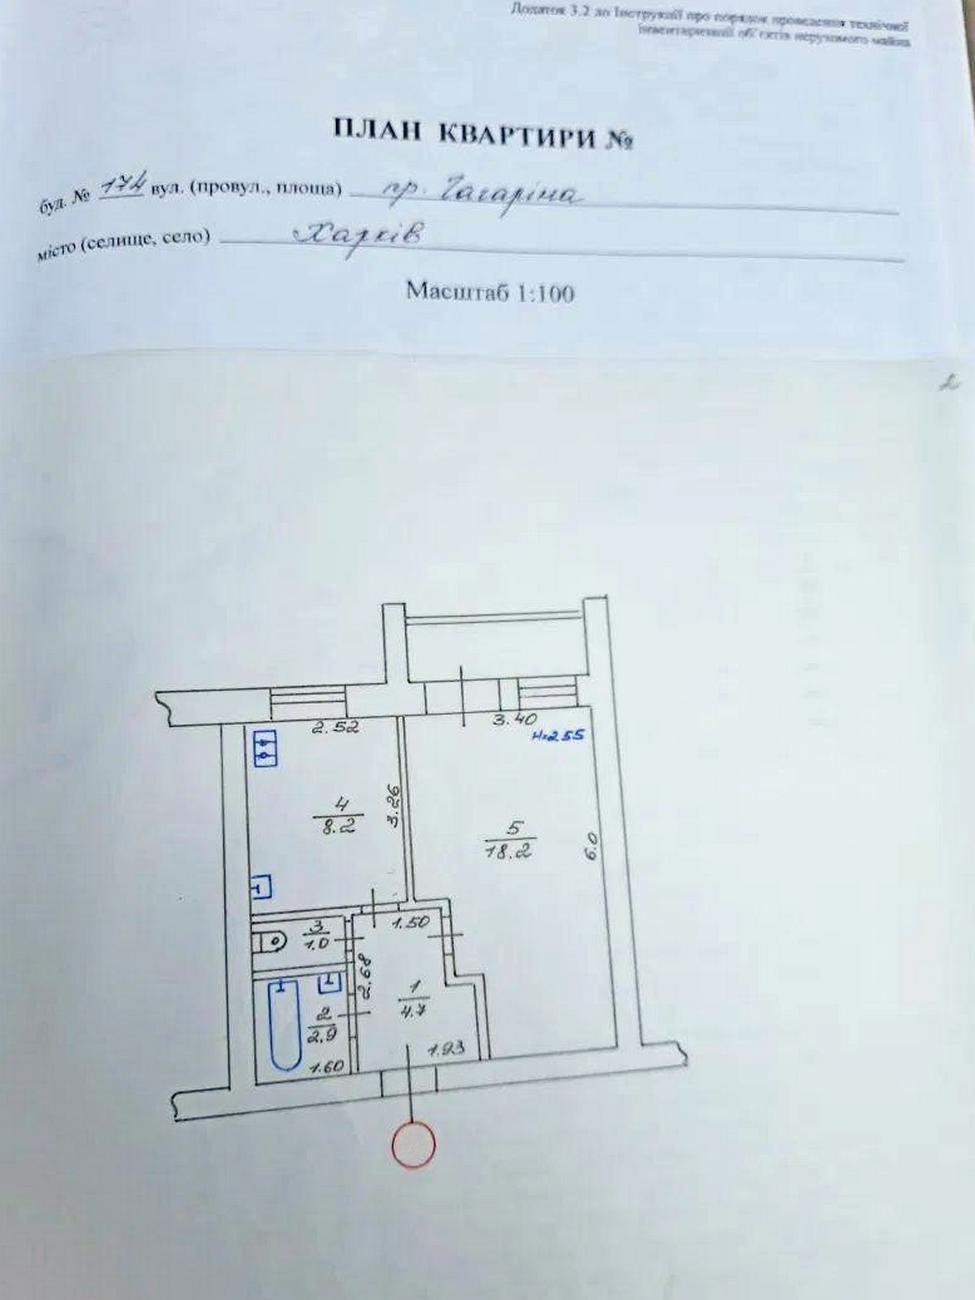 Додаток 3.2 до Інструкції про порядок проведення технічної
інвентаризації об'єктів нерухомого майна
ПЛАН КВАРТИРИ №
буд. № 174 вул. (провул., площа) пр. Гагаріна
місто (селище, село) Харків
Масштаб 1:100
2.52
3.40
H=2.55
4
8.2
3.26
5
18.2
6.0
3
1.0
1.50
2.68
1
4.7
2
2.9
1.60
1.93